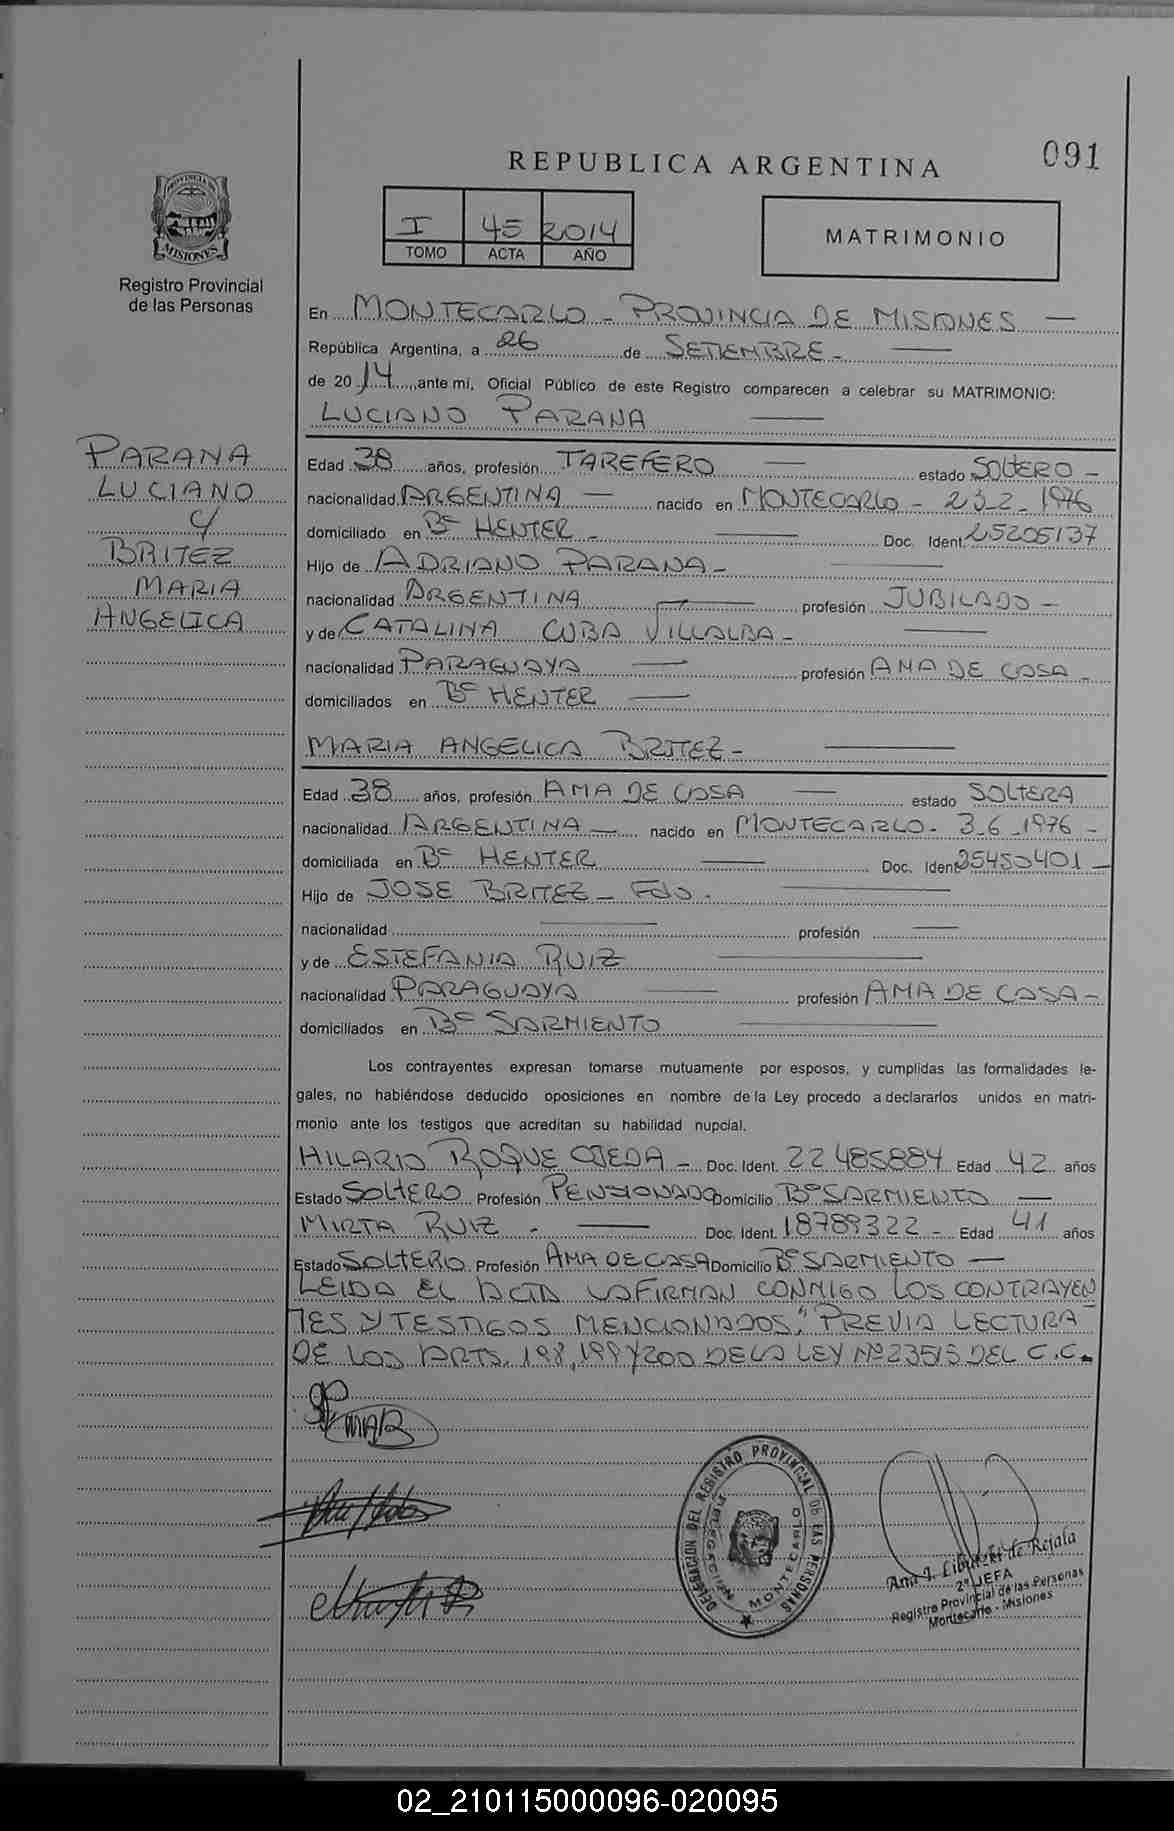 091
REPUBLICA ARGENTINA
PROVINCIA DE
MISIONES
Registro Provincial
de las Personas
I 45 2014
TOMO ACTA AÑO
MATRIMONIO
En MONTECARLO - PROVINCIA DE MISIONES —
República Argentina, a 26 de SETIEMBRE -
de 2014, ante mi, Oficial Público de este Registro comparecen a celebrar su MATRIMONIO:
LUCIANO PARANA
PARANA
LUCIANO
Y
BRITEZ
MARIA
ANGELICA
Edad 38 años, profesión TAREFERO — estado SOLTERO -
nacionalidad ARGENTINA — nacido en MONTECARLO - 23-2-1976
domiciliado en Bº HENTER - Doc. Ident. 25205137
Hijo de ADRIANO PARANA -
nacionalidad ARGENTINA profesión JUBILADO -
y de CATALINA CUBA VILLALBA -
nacionalidad PARAGUAYA — profesión AMA DE CASA -
domiciliados en Bº HENTER —
MARIA ANGELICA BRITEZ -
Edad 38 años, profesión AMA DE CASA — estado SOLTERA
nacionalidad ARGENTINA — nacido en MONTECARLO - 3-6-1976 -
domiciliada en Bº HENTER — Doc. Ident. 25450401 -
Hijo de JOSE BRITEZ - Fdo.
nacionalidad — profesión —
y de ESTEFANIA RUIZ
nacionalidad PARAGUAYA — profesión AMA DE CASA -
domiciliados en Bº SARMIENTO
Los contrayentes expresan tomarse mutuamente por esposos, y cumplidas las formalidades le-
gales, no habiéndose deducido oposiciones en nombre de la Ley procedo a declararlos unidos en matri-
monio ante los testigos que acreditan su habilidad nupcial.
HILARIO ROQUE OJEDA - Doc. Ident. 22485884 Edad 42 años
Estado SOLTERO Profesión PENSIONADO Domicilio Bº SARMIENTO —
MIRTA RUIZ - — Doc. Ident. 18789322 - Edad 41 años
Estado SOLTERO Profesión AMA DE CASA Domicilio Bº SARMIENTO —
LEIDA EL ACTA LA FIRMAN CONMIGO LOS CONTRAYEN
TES Y TESTIGOS MENCIONADOS." PREVIA LECTURA
DE LOS ARTS. 198, 199 Y 200 DE LA LEY Nº 23515 DEL C.C.
MAB
DELEGACION DEL REGISTRO PROVINCIAL DE LAS PERSONAS
DELEGACION MONTECARLO
Ana I. de Rejala
2ª JEFA
Registro Provincial de las Personas
Montecarlo - Misiones
02_210115000096-020095